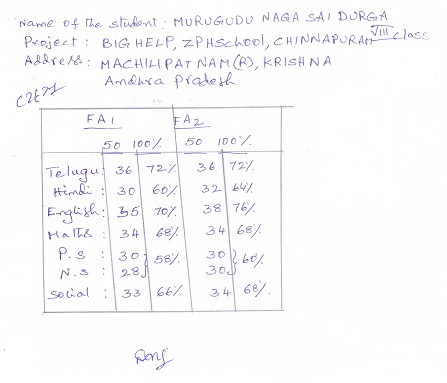 Name of the student: MURUGUDU NAGA SAI DURGA
Project: BIGHELP, ZPHSchool, CHINNAPURAM VIII class
Address: MACHILIPATNAM(R), KRISHNA
Andhra Pradesh
FA1 FA2
50 100% 50 100%
Telugu: 36 72% 36 72%
Hindi: 30 60% 32 64%
English: 35 70% 38 76%
Maths: 34 68% 34 68%
P.S: 30 58% 30 60%
N.S: 28 30
Social: 33 66% 34 68%